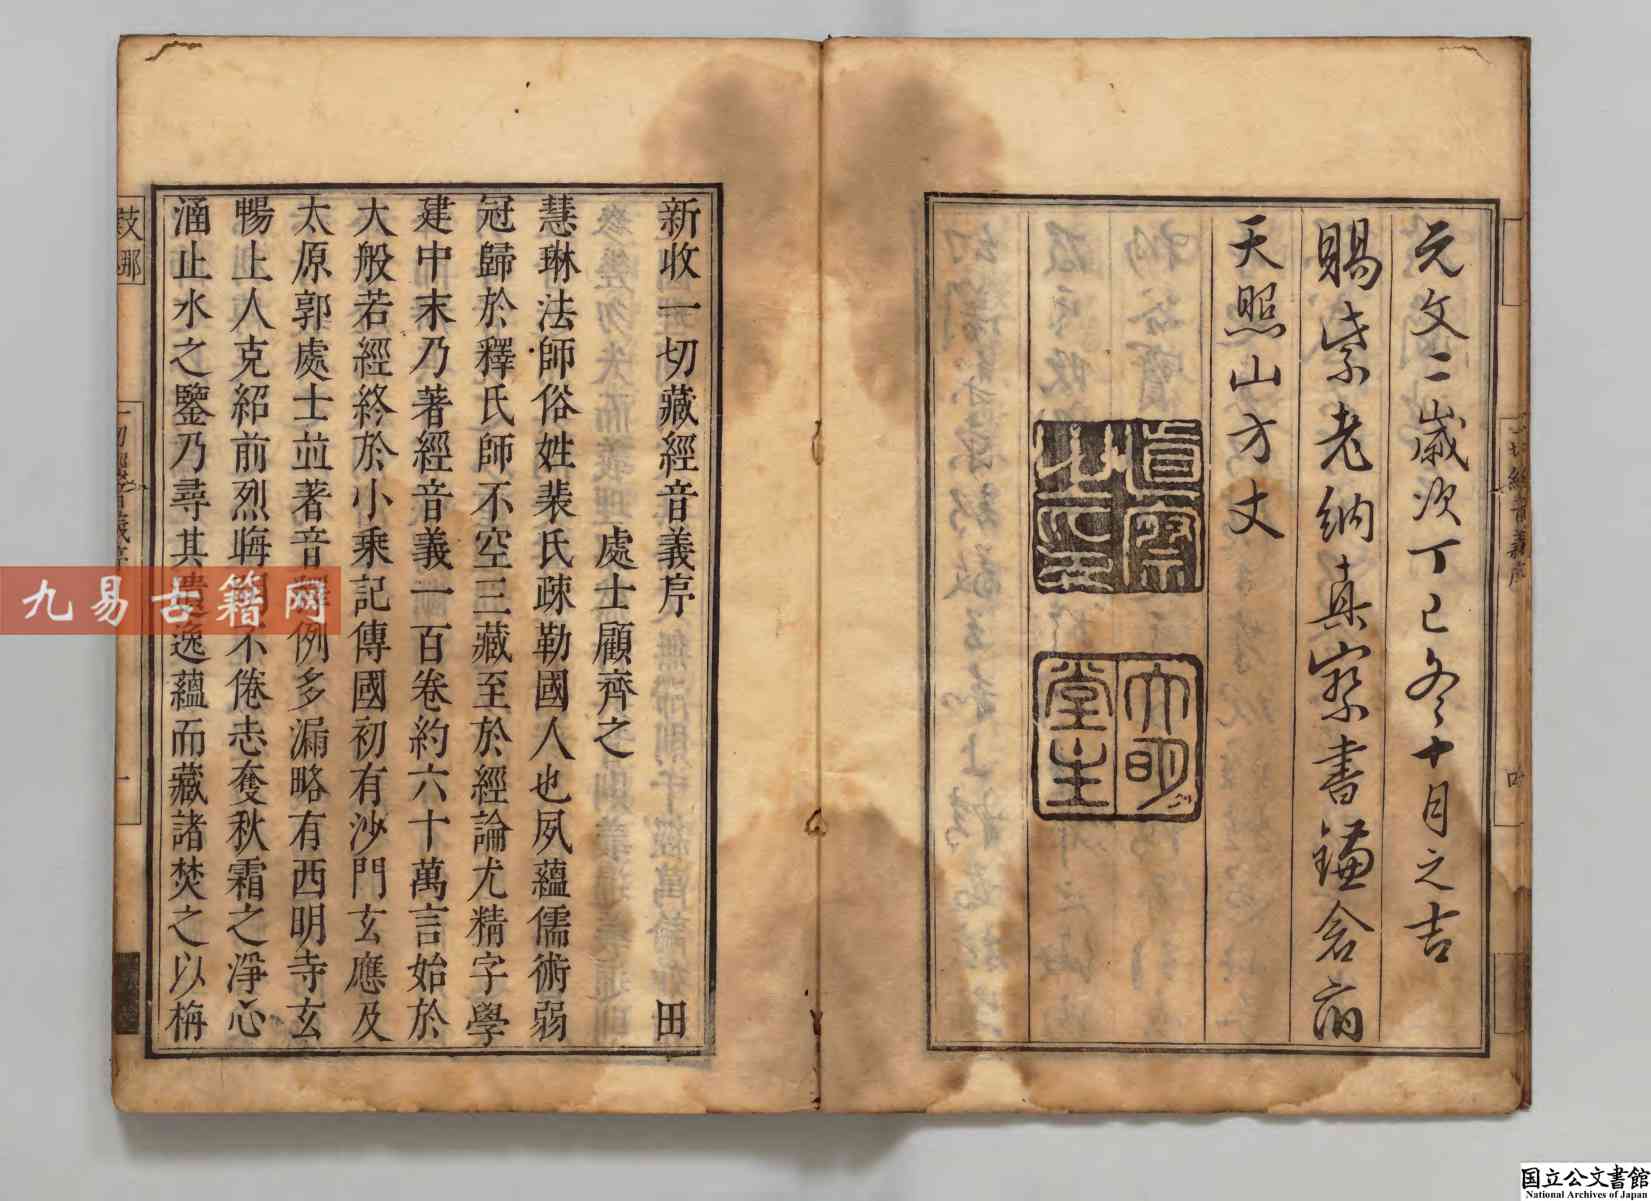 元文二歲次丁巳冬十月之吉
賜紫老衲真察書鎌倉府
天照山方丈
新收一切藏經音義序 田
處士顧齊之
慧琳法師俗姓裴氏疎勒國人也夙蘊儒術弱
冠歸於釋氏師不空三藏至於經論尤精字學
建中末乃著經音義一百卷約六十萬言始於
大般若經終於小乘記傳國初有沙門玄應及
太原郭處士並著音釋例多漏略有西明寺玄
暢上人克紹前烈誨不倦志奪秋霜之淨心
涵止水之鑒乃尋其遺逸蘊而藏諸焚之以栴
九易古籍网
国立公文書館
National Archives of Japan